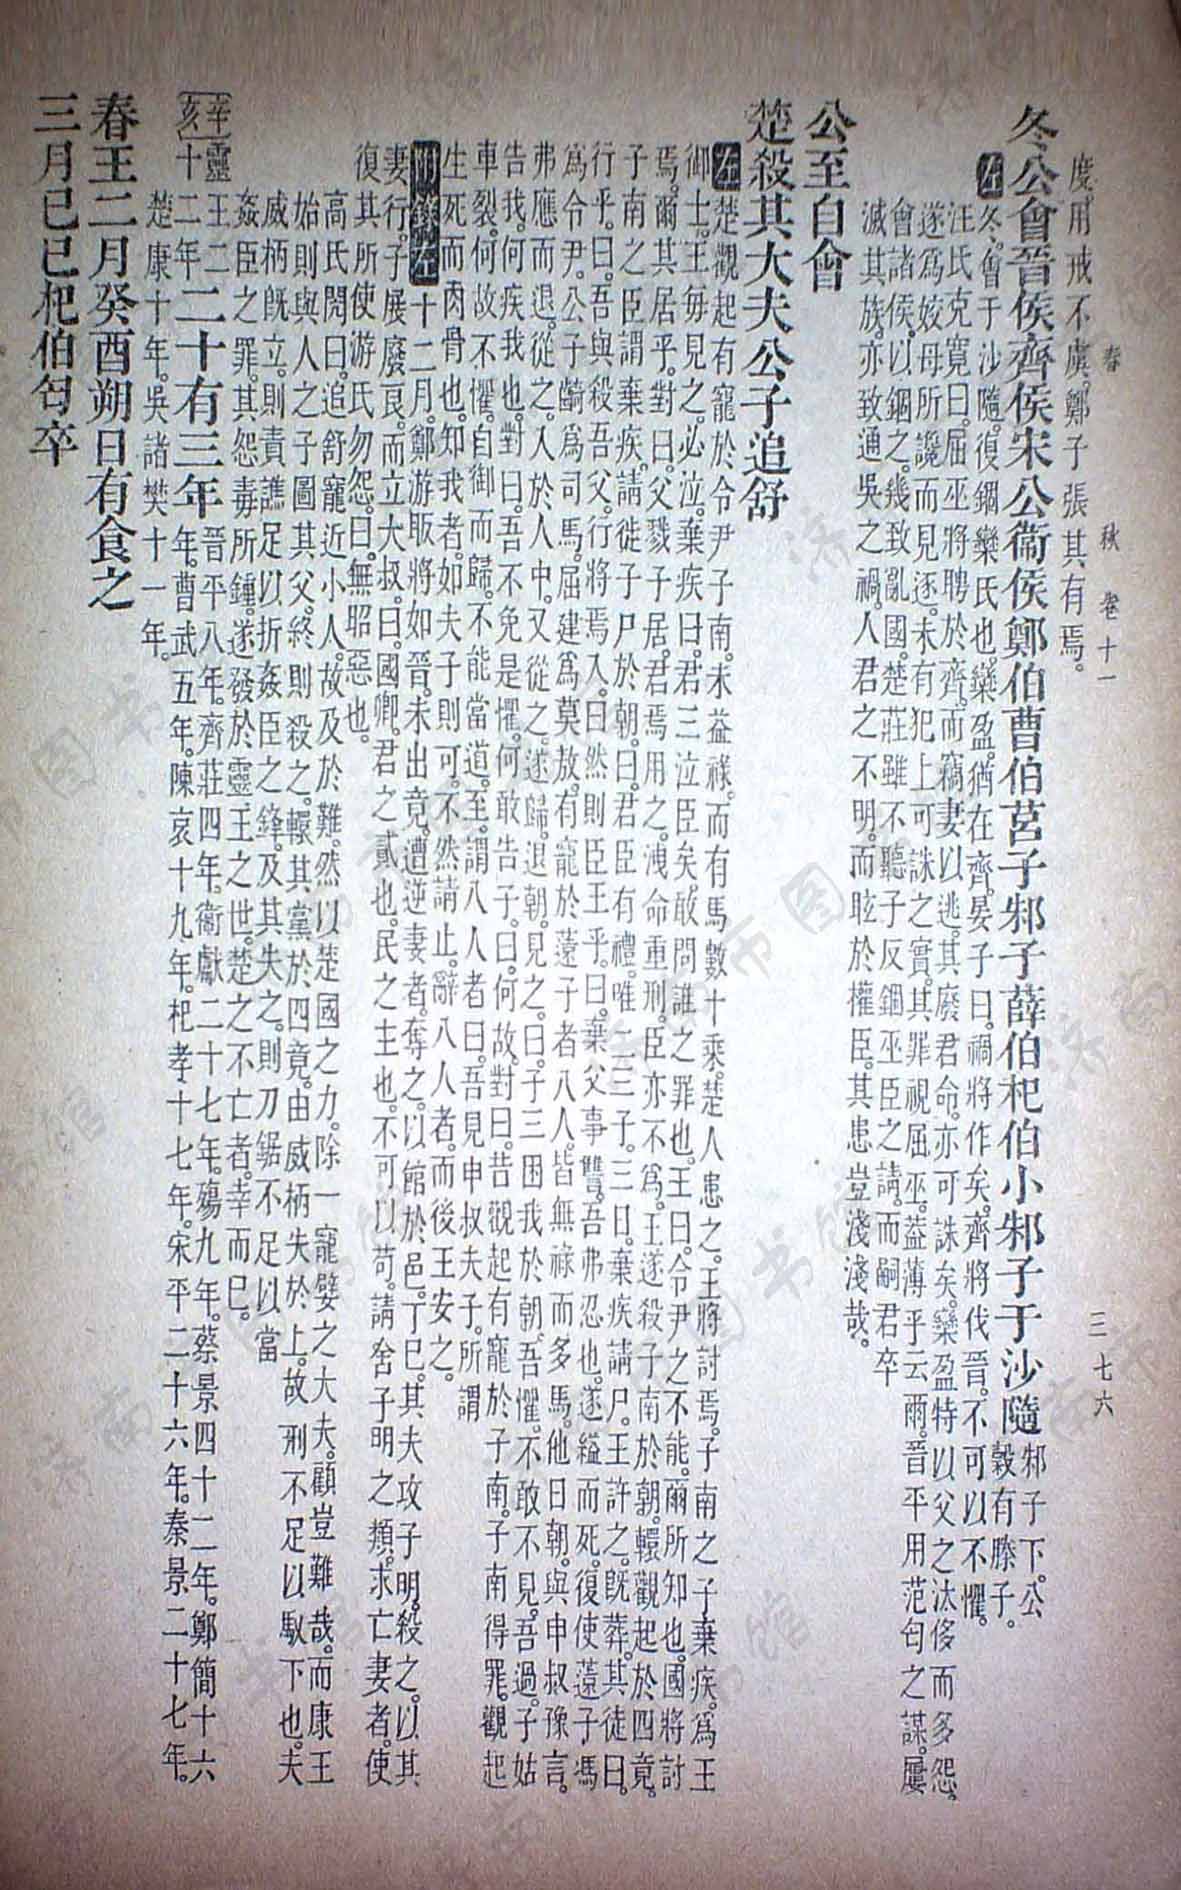 春　秋　卷十一　三七六
度用戒不虞鄭子張其有焉。
冬公會晉侯齊侯宋公衞侯鄭伯曹伯莒子邾子薛伯杞伯小邾子于沙隨邾子下公
穀有滕子。
左冬會于沙隨。復錮欒氏也。欒盈猶在齊。晏子曰。禍將作矣。齊將伐晉。不可以不懼。
汪氏克寬曰。屈巫將聘於齊。而竊妻以逃。其廢君命。亦可誅矣。欒盈特以父之汰侈而多怨。
遂爲妏母所讒而見逐。未有犯上可誅之實。其罪視屈巫。益薄乎云爾。晉平用范匄之謀。屢
會諸侯。以錮之。幾致亂國。楚莊雖不聽子反錮巫臣之請。而嗣君卒
滅其族。亦致通吳之禍。人君之不明。而眩於權臣。其患豈淺淺哉。
公至自會
楚殺其大夫公子追舒
左楚觀起有寵於令尹子南。未益祿。而有馬數十乘。楚人患之。王將討焉。子南之子棄疾。爲王
御士。王每見之。必泣。棄疾曰。君三泣臣矣。敢問誰之罪也。王曰。令尹之不能。爾所知也。國將討
焉。爾其居乎。對曰。父戮子居。君焉用之。洩命重刑。臣亦不爲。王遂殺子南於朝。轘觀起於四竟。
子南之臣謂棄疾。請徙子尸於朝。曰。君臣有禮。唯二三子。三日。棄疾請尸。王許之。旣葬。其徒曰。
行乎。曰。吾與殺吾父。行將焉入。曰。然則臣王乎。曰。棄父事讐。吾弗忍也。遂縊而死。復使薳子馮
爲令尹。公子齮爲司馬。屈建爲莫敖。有寵於薳子者八人。皆無祿而多馬。他日朝。與申叔豫言。
弗應而退。從之。入於人中。又從之。遂歸。退朝。見之。曰。子三困我於朝。吾懼。不敢不見。吾過。子姑
告我。何疾我也。對曰。吾不免是懼。何敢告子。曰。何故。對曰。昔觀起有寵於子南。子南得罪。觀起
車裂。何故不懼。自御而歸。不能當道。至。謂八人者曰。吾見申叔夫子。所謂
生死而肉骨也。知我者。如夫子則可。不然請止。辭八人者。而後王安之。
附錄左十二月。鄭游昄將如晉。未出竟。遭逆妻者。奪之。以館於邑。丁巳。其夫攻子明。殺之。以其
妻行。子展廢良。而立大叔。曰。國卿。君之貳也。民之主也。不可以苟。請舍子明之類。求亡妻者。使
復其所。使游氏勿怨。曰。無昭惡也。
高氏閌曰。追舒寵近小人。故及於難。然以楚國之力。除一寵嬖之大夫。顧豈難哉。而康王
始則與人之子圖其父。終則殺之。轘其黨於四竟。由威柄失於上。故刑不足以馭下也。夫
威柄旣立。則責譙足以折姦臣之鋒。及其失之。則刀鋸不足以當
姦臣之罪。其怨毒所鍾。遂發於靈王之世。楚之不亡者。幸而已。
辛亥靈王二十二年二十有三年晉平八年。齊莊四年。衞獻二十七年。殤九年。蔡景四十二年。鄭簡十六
年。曹武五年。陳哀十九年。杞孝十七年。宋平二十六年。秦景二十七年。
楚康十年。吳諸樊十一年。
春王二月癸酉朔日有食之
三月己巳杞伯匄卒